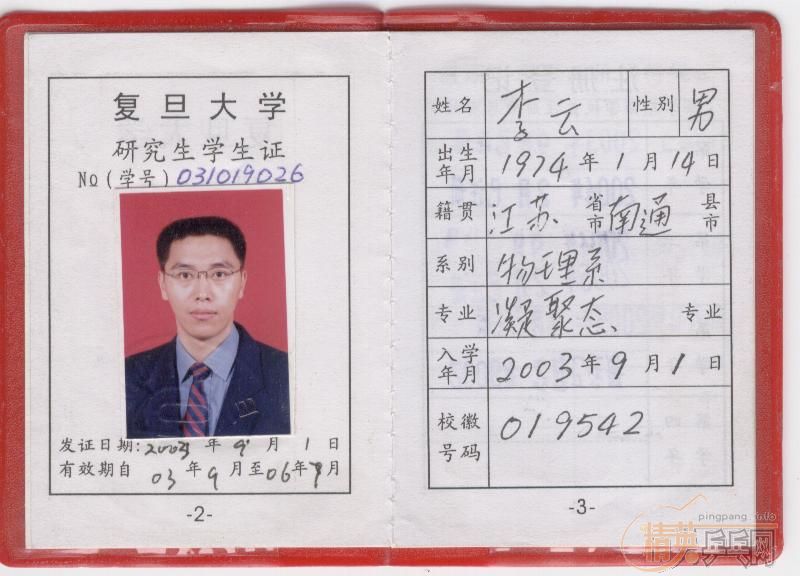 复旦大学
研究生学生证
No（学号）031019026
发证日期：2003年9月1日
有效期自
03年9月至06年7月
-2-
姓名 李云 性别 男
出生年月 1974年1月14日
籍贯 江苏省市南通县市
系别 物理系
专业 凝聚态 专业
入学年月 2003年9月1日
校徽号码 019542
-3-
pingpang.info
精英乒乓网